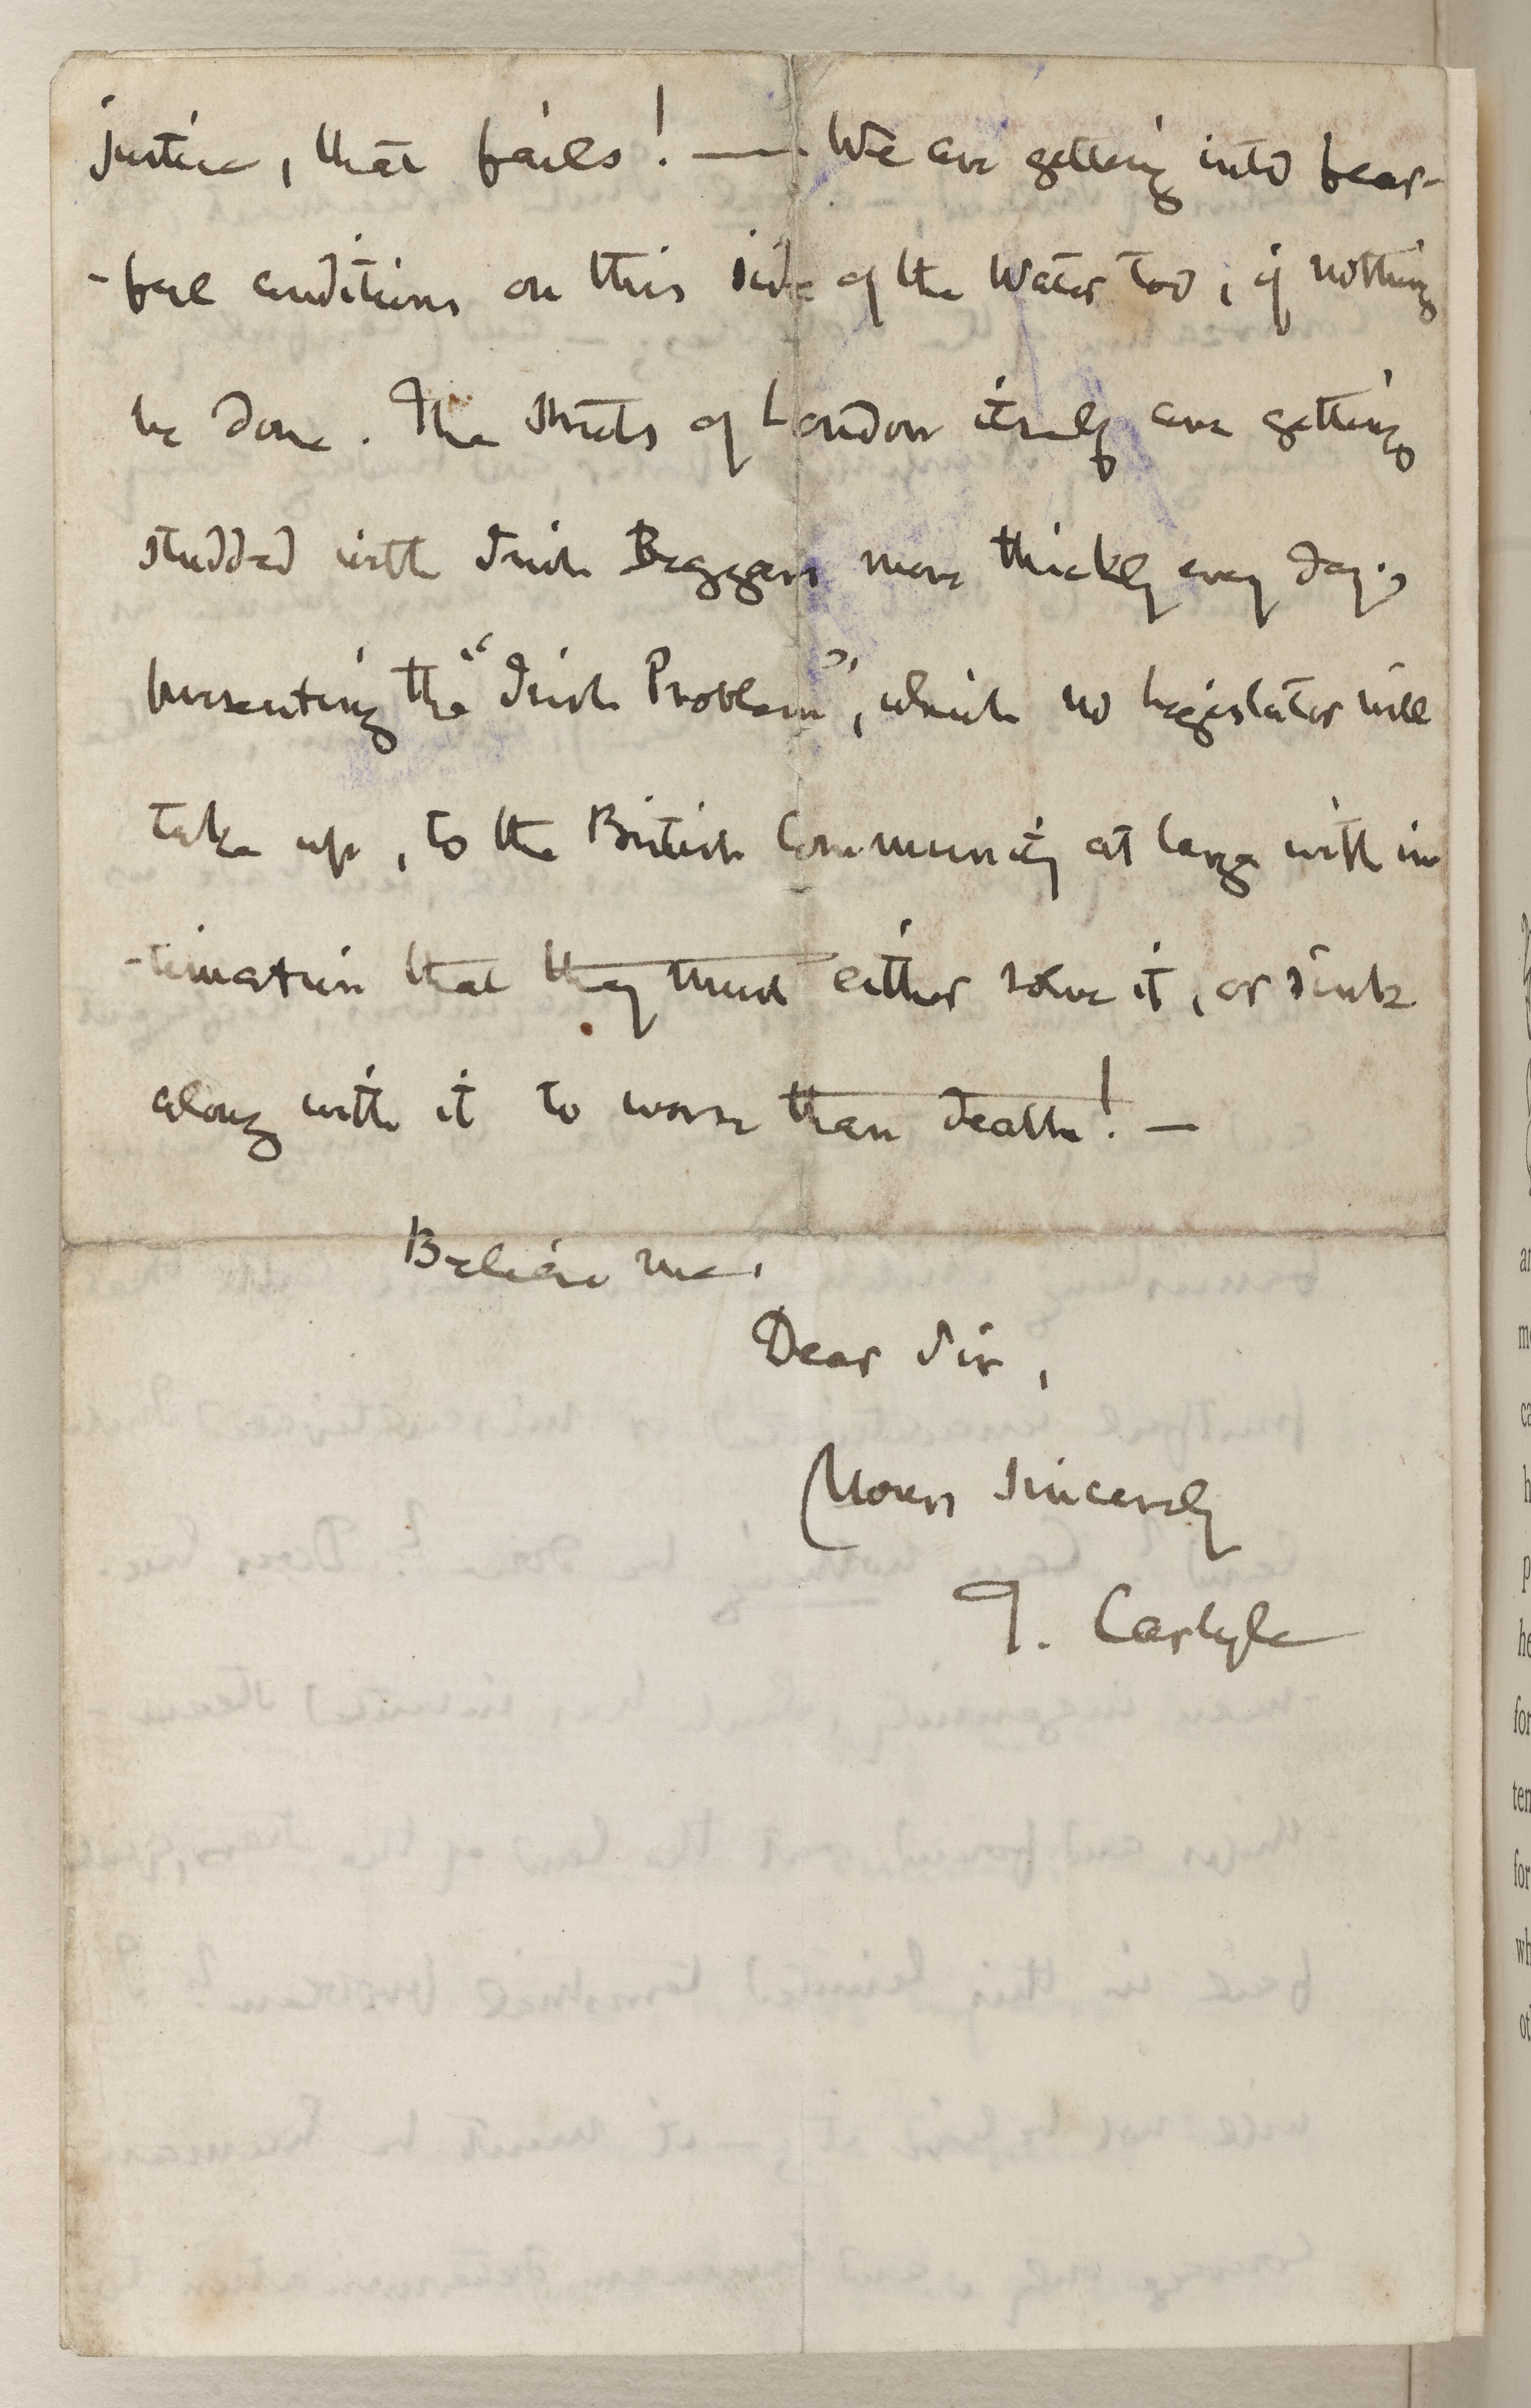 justice, that fails! — We are getting into fear-
-ful conditions on this side of the Water too, if nothing
be done. The streets of London itself are getting
studded with Irish Beggars more thickly every day;
presenting the "Irish Problem", which no Legislator will
take up, to the British Community at large with in
-timation that they must either solve it, or sink
along with it to worse than death! —
Believe me,
Dear Sir,
Yours sincerely
T. Carlyle